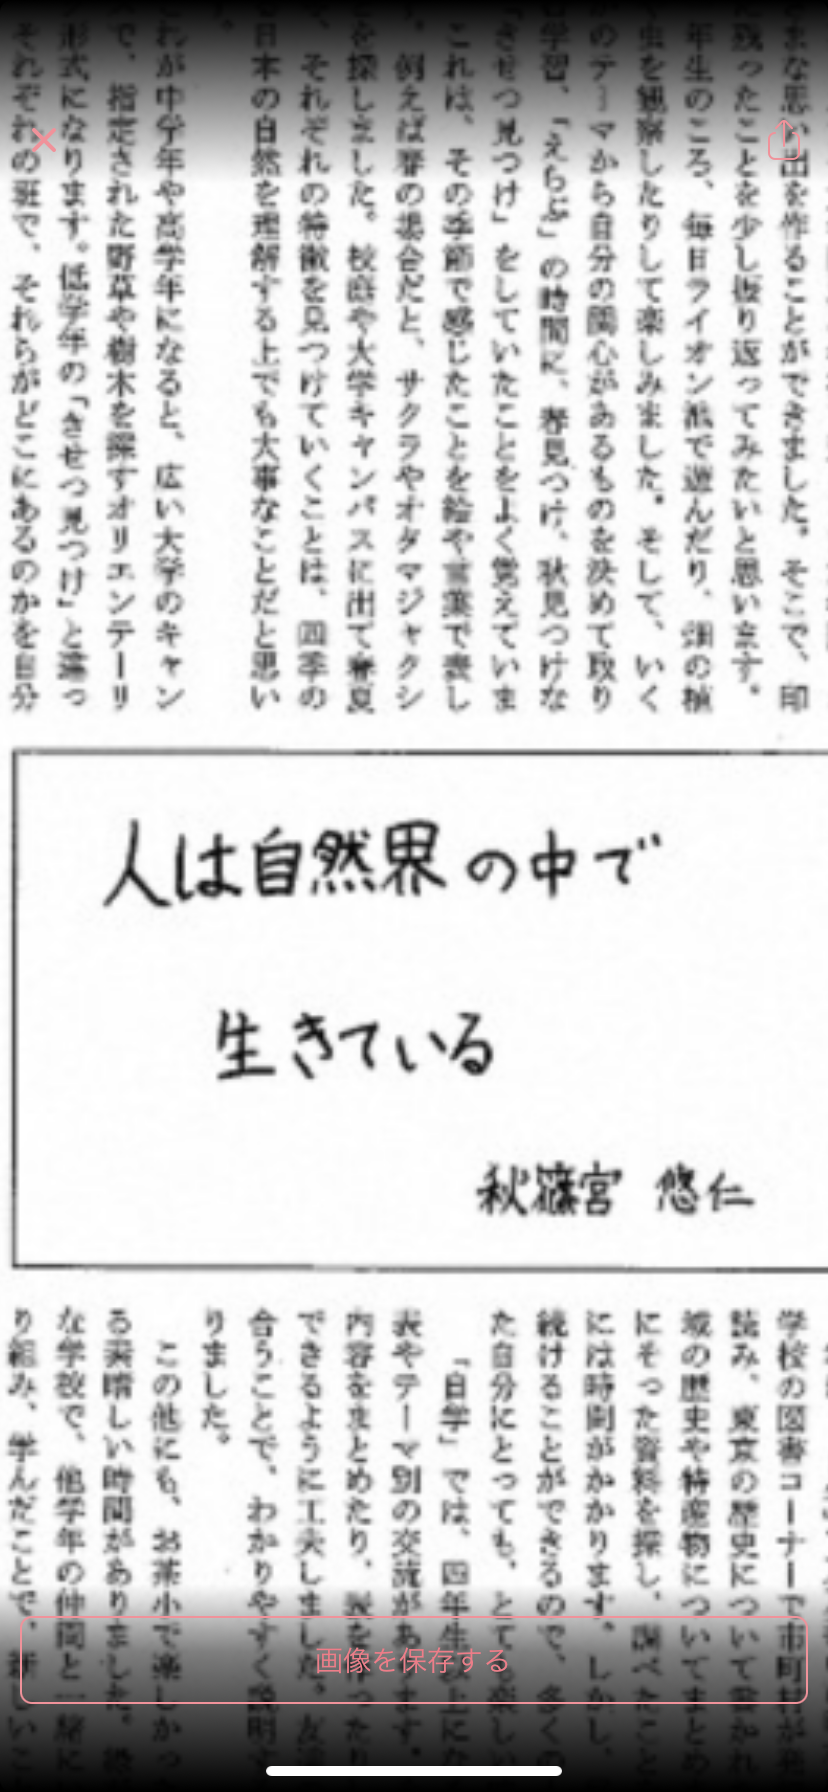 まな思い出を作ることができました。そこで、印
残ったことを少し振り返ってみたいと思います。
年生のころ、毎日ライオン池で遊んだり、畑の植
虫を観察したりして楽しみました。そして、いく
のテーマから自分の関心があるものを決めて取り
学習、「えらぶ」の時間に、春見つけ、秋見つけな
「きせつ見つけ」をしていたことをよく覚えていま
これは、その季節で感じたことを絵や言葉で表し
。例えば春の場合だと、サクラやオタマジャクシ
を探しました。校庭や大学キャンパスに出て春夏
、それぞれの特徴を見つけていくことは、四季の
日本の自然を理解する上でも大事なことだと思い
。
これが中学年や高学年になると、広い大学のキャン
で、指定された野草や樹木を探すオリエンテーリ
形式になります。低学年の「きせつ見つけ」と違っ
それぞれの班で、それらがどこにあるのかを自分
人は自然界の中で
生きている
秋篠宮 悠仁
学校の図書コーナーで市町村が発
読み、東京の歴史について書かれ
域の歴史や特産物についてまとめ
にそった資料を探し、調べたこと
には時間がかかります。しかし、
続けることができるので、多くの
た自分にとっても、とても楽しい
「自学」では、四年生以上にな
表やテーマ別の交流があります。
内容をまとめたり、
できるように工夫しました。友達
合うことで、わかりやすく説明す
りました。
この他にも、お茶小で楽しかっ
る素晴しい時間がありました。
な学校で、他学年の仲間と一緒に
り組み、学んだことで、新しいこ
画像を保存する